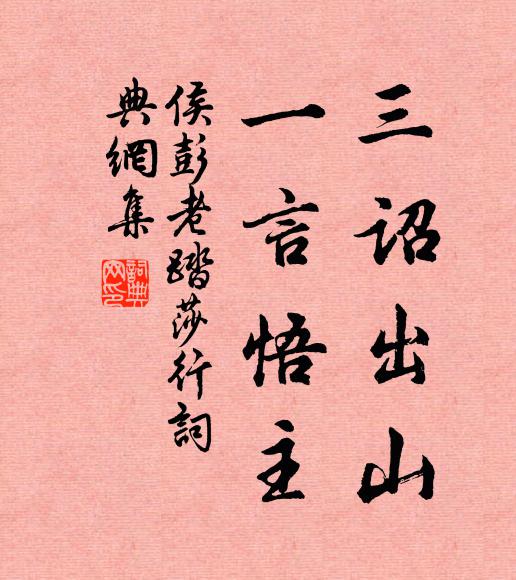 三詔出山
一言悟主
侯彭老踏莎行詞
典網集
詞典網印